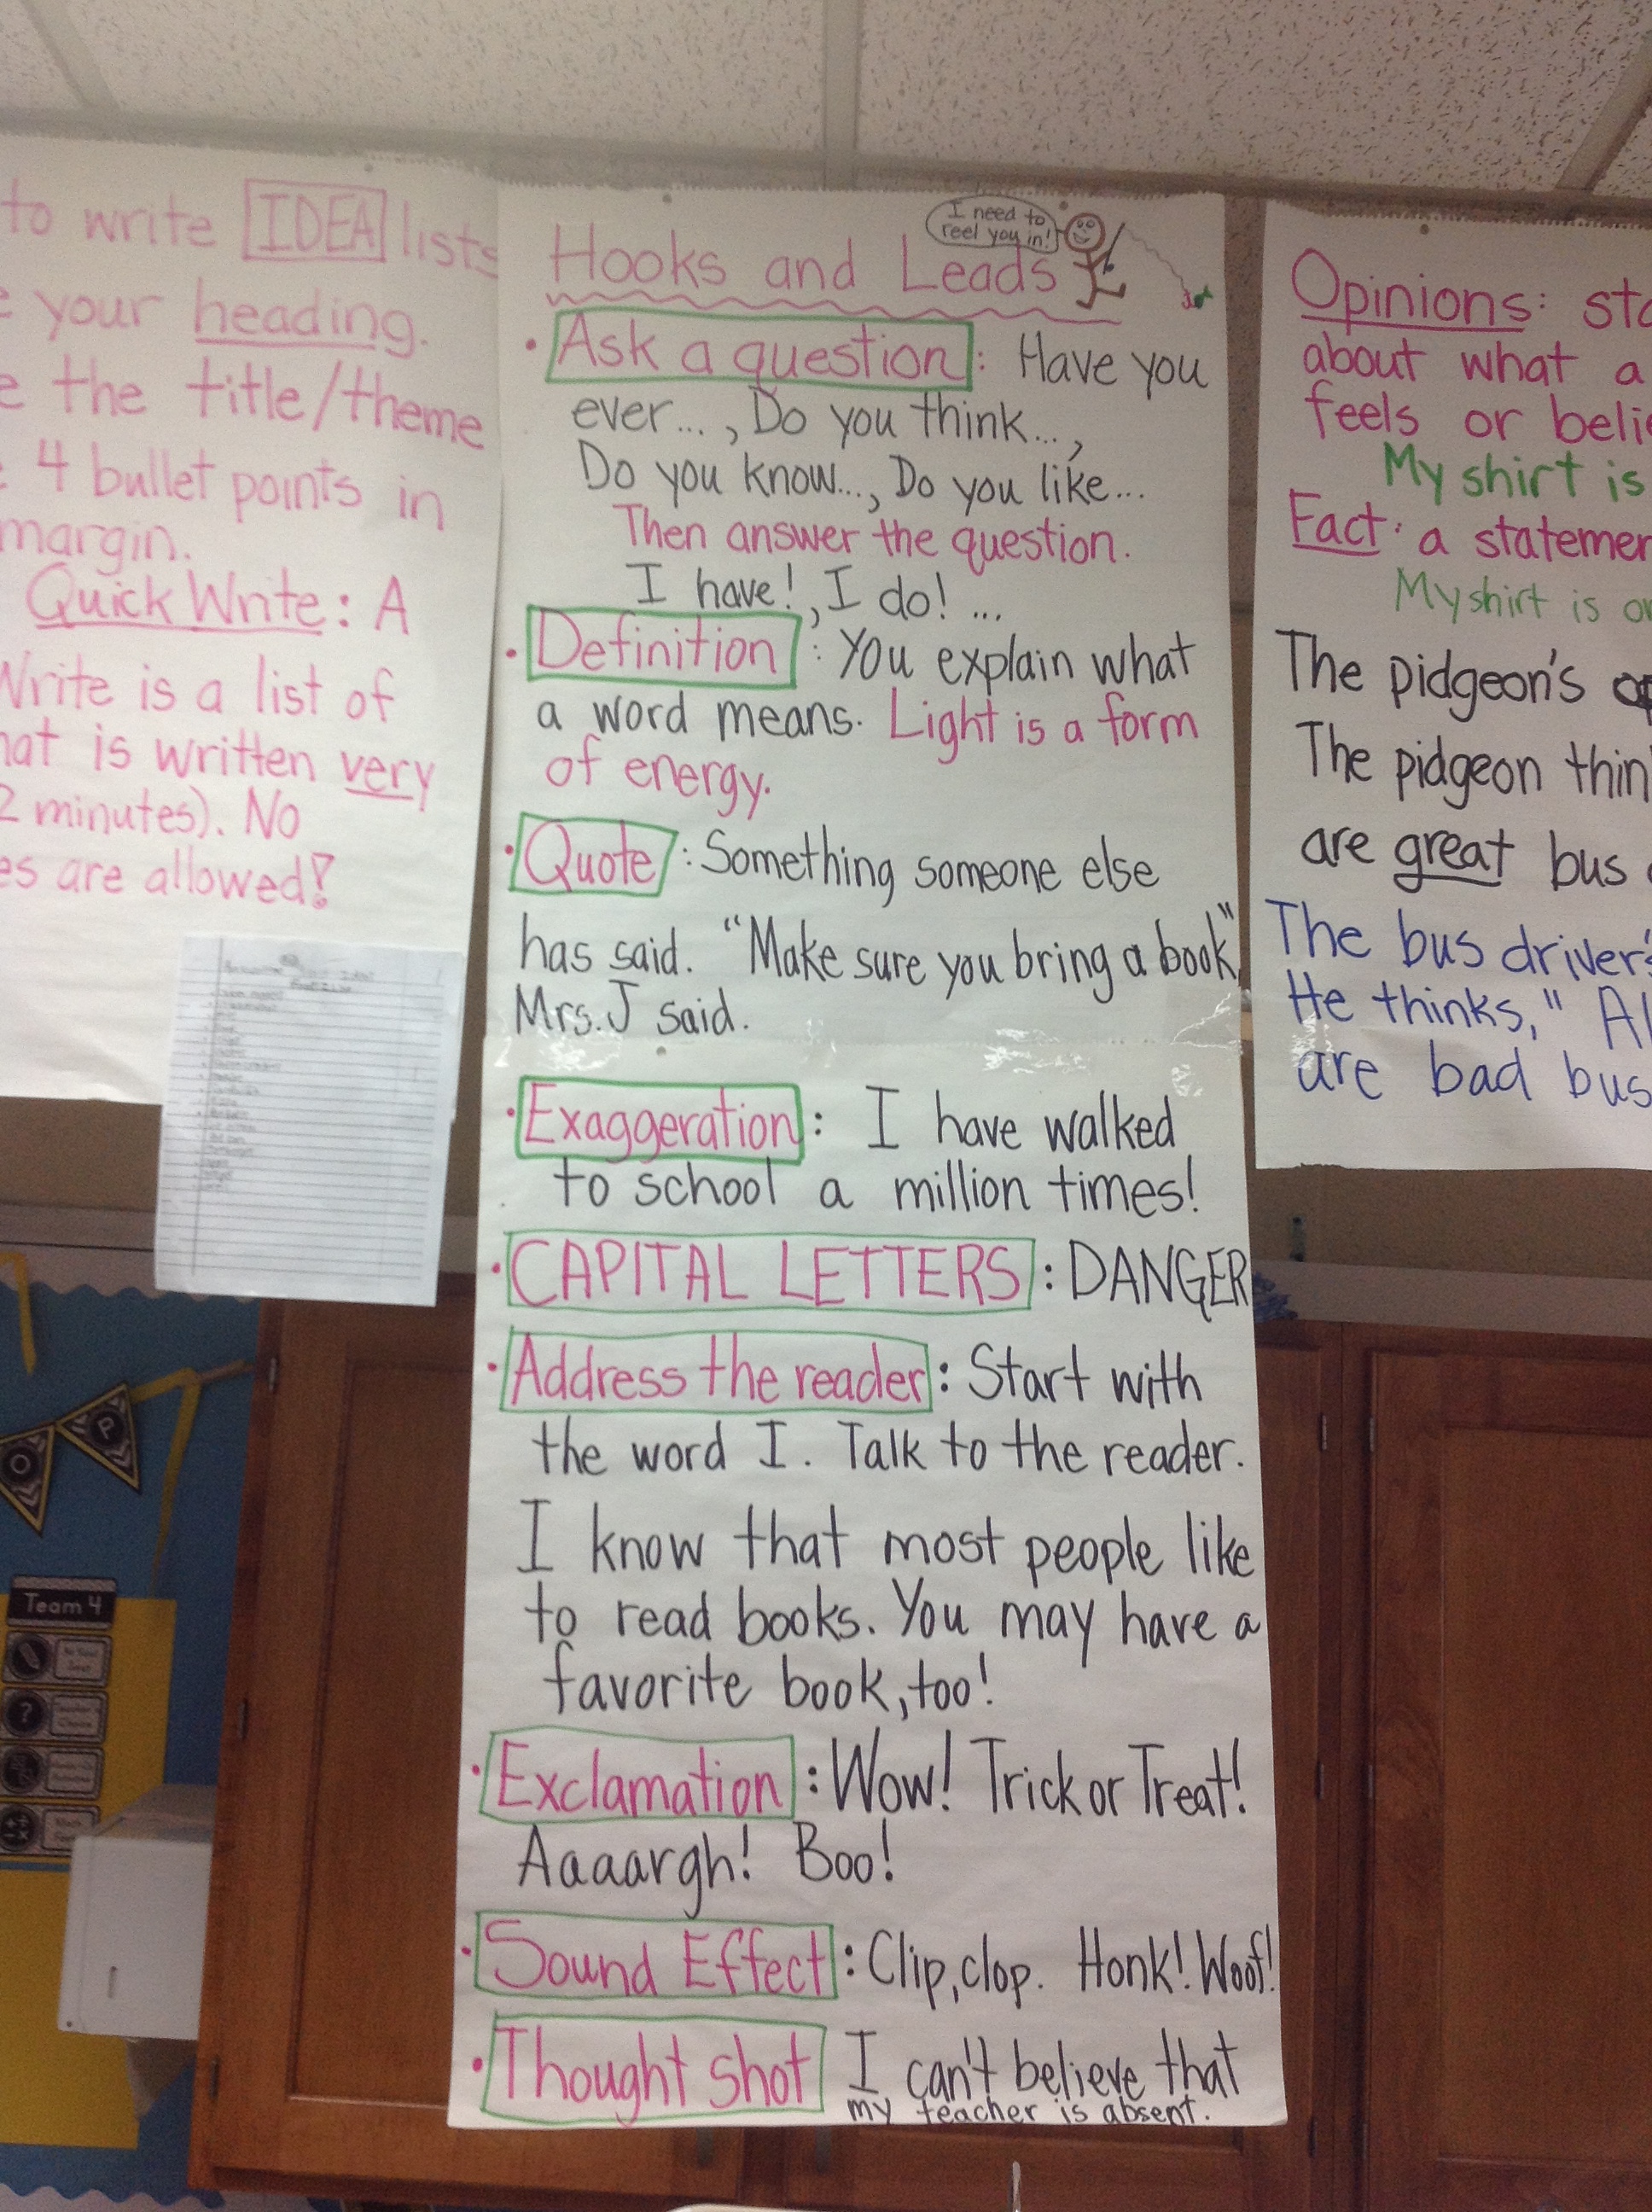 to write IDEA lists
your heading.
the title/theme
4 bullet points in
margin.
Quick Write: A
Write is a list of
is written very
2 minutes). No
are allowed!
I need to
reel you in!
Hooks and Leads
• Ask a question: Have you
ever..., Do you think...,
Do you know..., Do you like...
Then answer the question.
I have!, I do! ...
• Definition: You explain what
a word means. Light is a form
of energy.
• Quote: Something someone else
has said. "Make sure you bring a book",
Mrs. J said.
• Exaggeration: I have walked
to school a million times!
• CAPITAL LETTERS: DANGER
• Address the reader: Start with
the word I. Talk to the reader.
I know that most people like
to read books. You may have a
favorite book, too!
• Exclamation: Wow! Trick or Treat!
Aaaargh! Boo!
• Sound Effect: Clip, clop. Honk! Woof!
• Thought shot I can't believe that
my teacher is absent.
Opinions:
about what a
feels or
My shirt is
Fact: a
My shirt is
The pidgeon's
The pidgeon
are great bus
The bus
He thinks,"
are bad bus
O P
Team 4
?